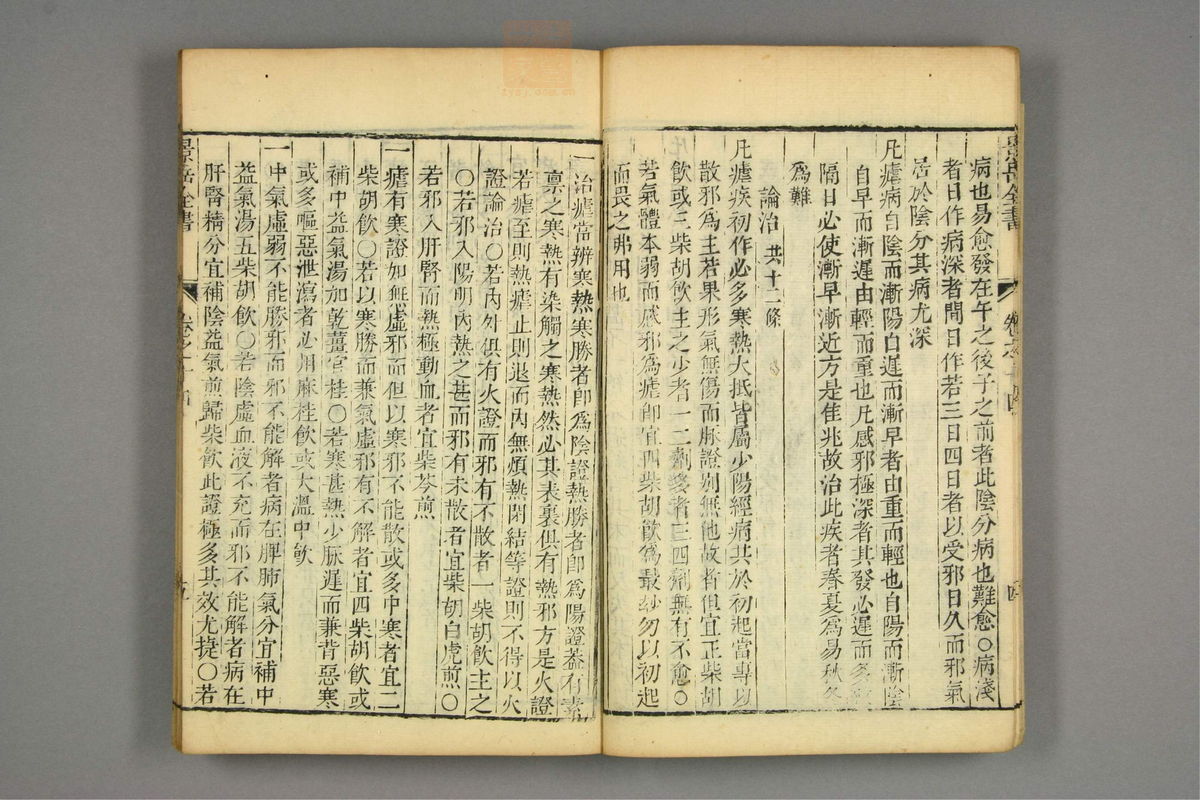 病也易愈發在午之後子之前者此陰分病也難愈〇病淺
者日作病深者間日作若三日四日者以受邪日久而邪氣
居於陰分其病尤深
凡瘧病自陰而漸陽自遲而漸早者由重而輕也自陽而漸陰
自早而漸遲由輕而重也凡感邪極深者其發必遲而多
隔日必使漸早漸近方是佳兆故治此疾者春夏爲易秋冬
爲難
論治 共十二條
凡瘧疾初作必多寒熱大抵皆屬少陽經病其於初起當專以
散邪爲主若果形氣無傷而脉證別無他故者但宜正柴胡
飲或三柴胡飲主之少者一二劑多者三四劑無有不愈〇
若氣體本弱而感邪爲瘧即宜四柴胡飲爲最妙勿以初起
而畏之弗用也
景岳全書
一治瘧當辨寒熱寒勝者卽爲陰證熱勝者卽爲陽證葢有素
禀之寒熱有染觸之寒熱然必其表裏俱有熱邪方是火證
若瘧至則熱瘧止則退而內無煩熱閉結等證則不得以火
證論治〇若內外俱有火證而邪有不散者一柴胡飲主之
〇若邪入陽明內熱之甚而邪有未散者宜柴胡白虎煎〇
若邪入肝腎而熱極動血者宜柴芩煎
一瘧有寒證如無虛邪而但以寒邪不能散或多中寒者宜二
柴胡飲〇若以寒勝而兼氣虛邪有不解者宜四柴胡飲或
補中益氣湯加乾薑官桂〇若寒甚熱少脉遲而兼背惡寒
或多嘔惡泄瀉者必用麻桂飲或大溫中飲
一中氣虛弱不能勝邪而邪不能解者病在脾肺氣分宜補中
益氣湯五柴胡飲〇若陰虛血液不充而邪不能解者病在
肝腎精分宜補陰益氣煎歸柴飲此證極多其效尤捷〇若
景岳全書